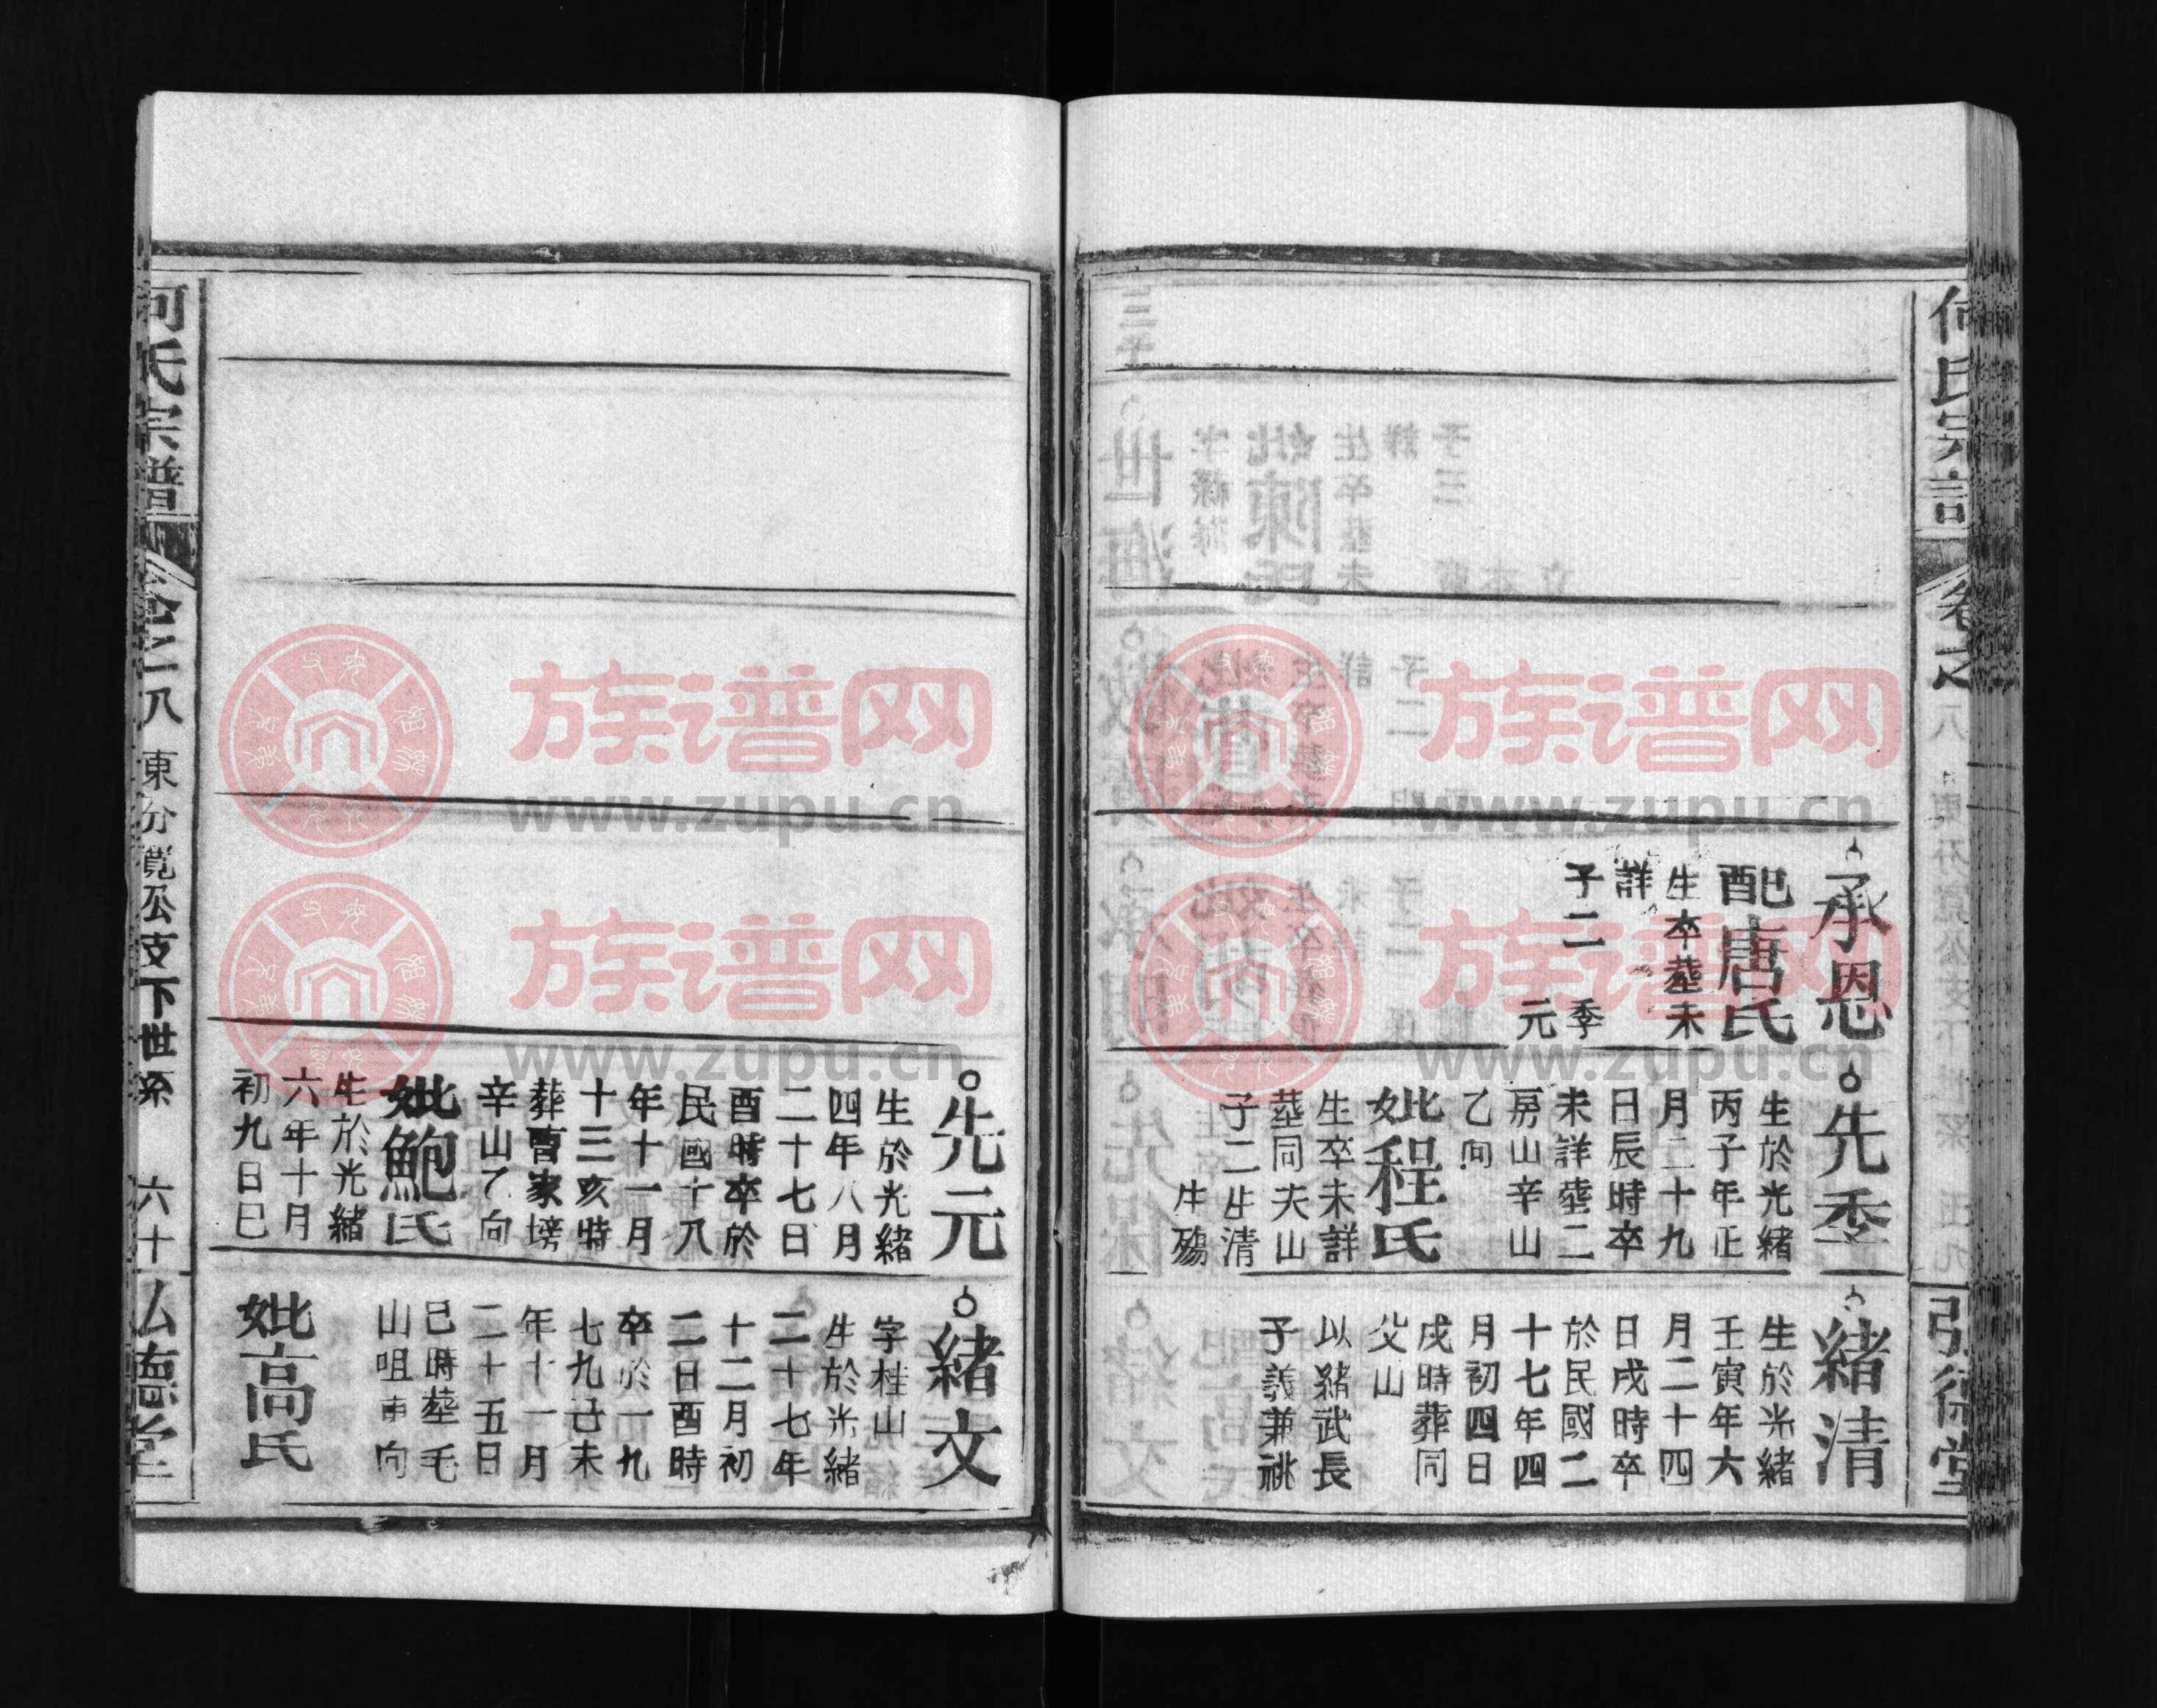 何氏宗譜
卷之八
東分寬公支下世系
弘德堂
承恩
配唐氏
生卒塟未
詳
子二 季
元
先季
生於光緒
丙子年正
月二十九
日辰時卒
未詳塟二
房山辛山
乙向
妣程氏
生卒未詳
塟同夫山
子二生清
生殤
緒清
生於光緒
壬寅年六
月二十四
日戌時卒
於民國二
十七年四
月初四日
戌時葬同
父山
以緒武長
子義兼祧
先元
生於光緒
四年八月
二十七日
酉時卒於
民國十八
年十一月
十三亥時
葬曹家塝
辛山乙向
妣鮑氏
生於光緒
六年十月
初九日巳
緒文
字桂山
生於光緒
二十七年
十二月初
二日酉時
卒於一九
七九己未
年十一月
二十五日
巳時塟毛
山咀 向
妣高氏
何氏宗譜
卷之八
東分寬公支下世系
六十
弘德堂
族谱网
www.zupu.cn
族谱网
www.zupu.cn
族谱网
www.zupu.cn
族谱网
www.zupu.cn